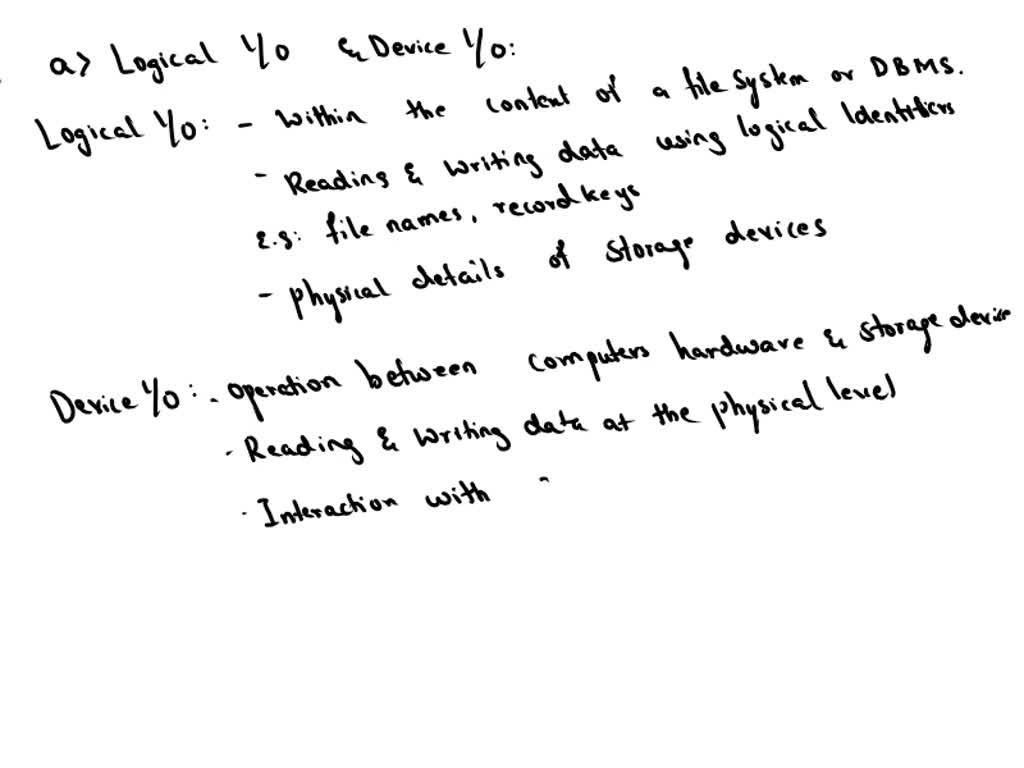 a> Logical I/O & Device I/O:
Logical I/O: - Within the content of a file System or DBMS.
- Reading & writing data using logical Identifiers
E.g: file names, record keys
- physical details of storage devices
Device I/O: . operation between computers hardware & storage device
. Reading & writing data at the physical level
. Interaction with